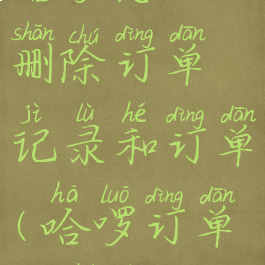 shān chú dìng dān
删除订单
jì lù hé dìng dān
记录和订单
hā luō dìng dān
(哈啰订单